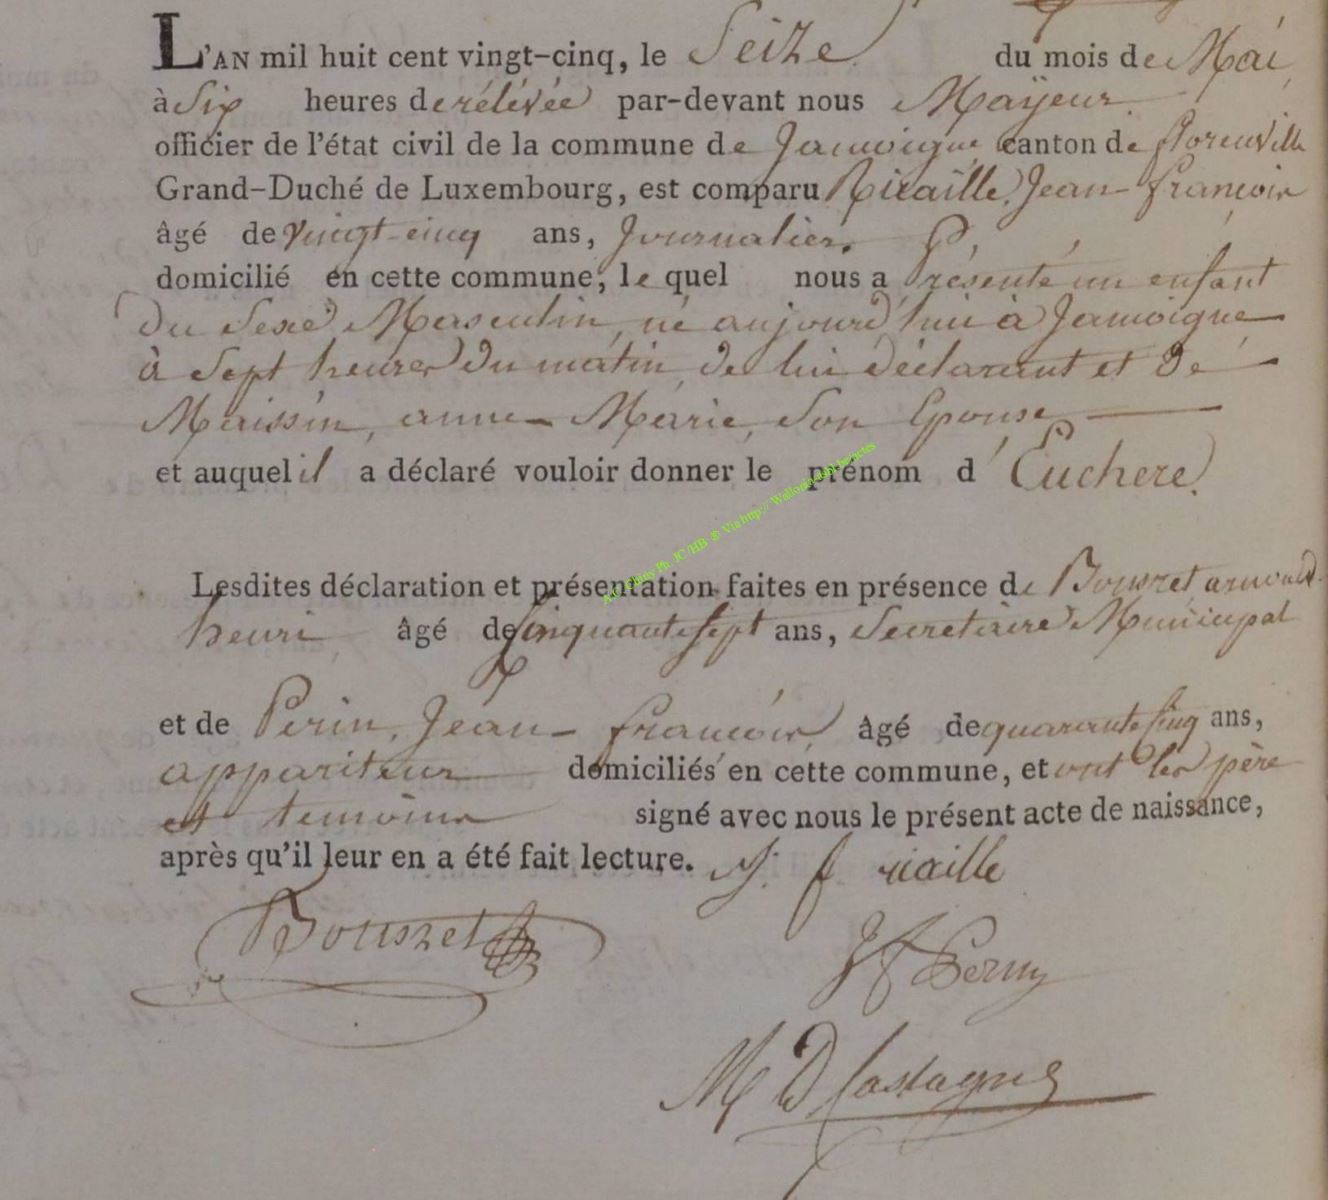 L'AN mil huit cent vingt-cinq, le Seize du mois de Mai
à Six heures de rélévée par-devant nous Mayeur
officier de l'état civil de la commune de Jamoigne canton de florenville
Grand-Duché de Luxembourg, est comparu Riaille, Jean-françois
âgé de vingt-cinq ans, Journalier,
domicilié en cette commune, le quel nous a Présenté un enfant
du Sexe Masculin, né aujourd'hui à Jamoigne
à Sept heures du matin, de lui déclarant et de
Maissin, anne-Marie, Son Epouse
et auquel il a déclaré vouloir donner le prénom d'Euchere.
Lesdites déclaration et présentation faites en présence de Bouszet arnould
henri âgé de Cinquante Sept ans, Secretaire Municipal
et de Perin, Jean-françois, âgé de quarante Cinq ans,
appariteur domiciliés en cette commune, et ont les père
et temoins signé avec nous le présent acte de naissance,
après qu'il leur en a été fait lecture. J. f riaille
Bouszet
JF Perin
M D Castagne